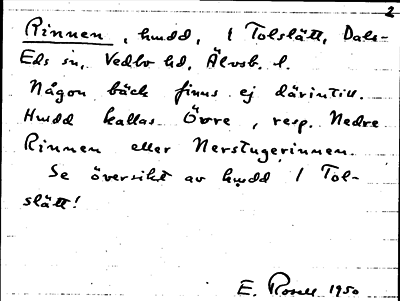 2
Rinnen, hmdd, i Tolslätt, Dals-
Eds sn, Vedbo hd, Älvsb. l.
Någon bäck finns ej därintill.
Hmdd kallas Övre, resp. Nedre
Rinnen eller Nerstugerinnen.
Se översikt av hmdd i Tol-
slätt!
E. Rosell 1950